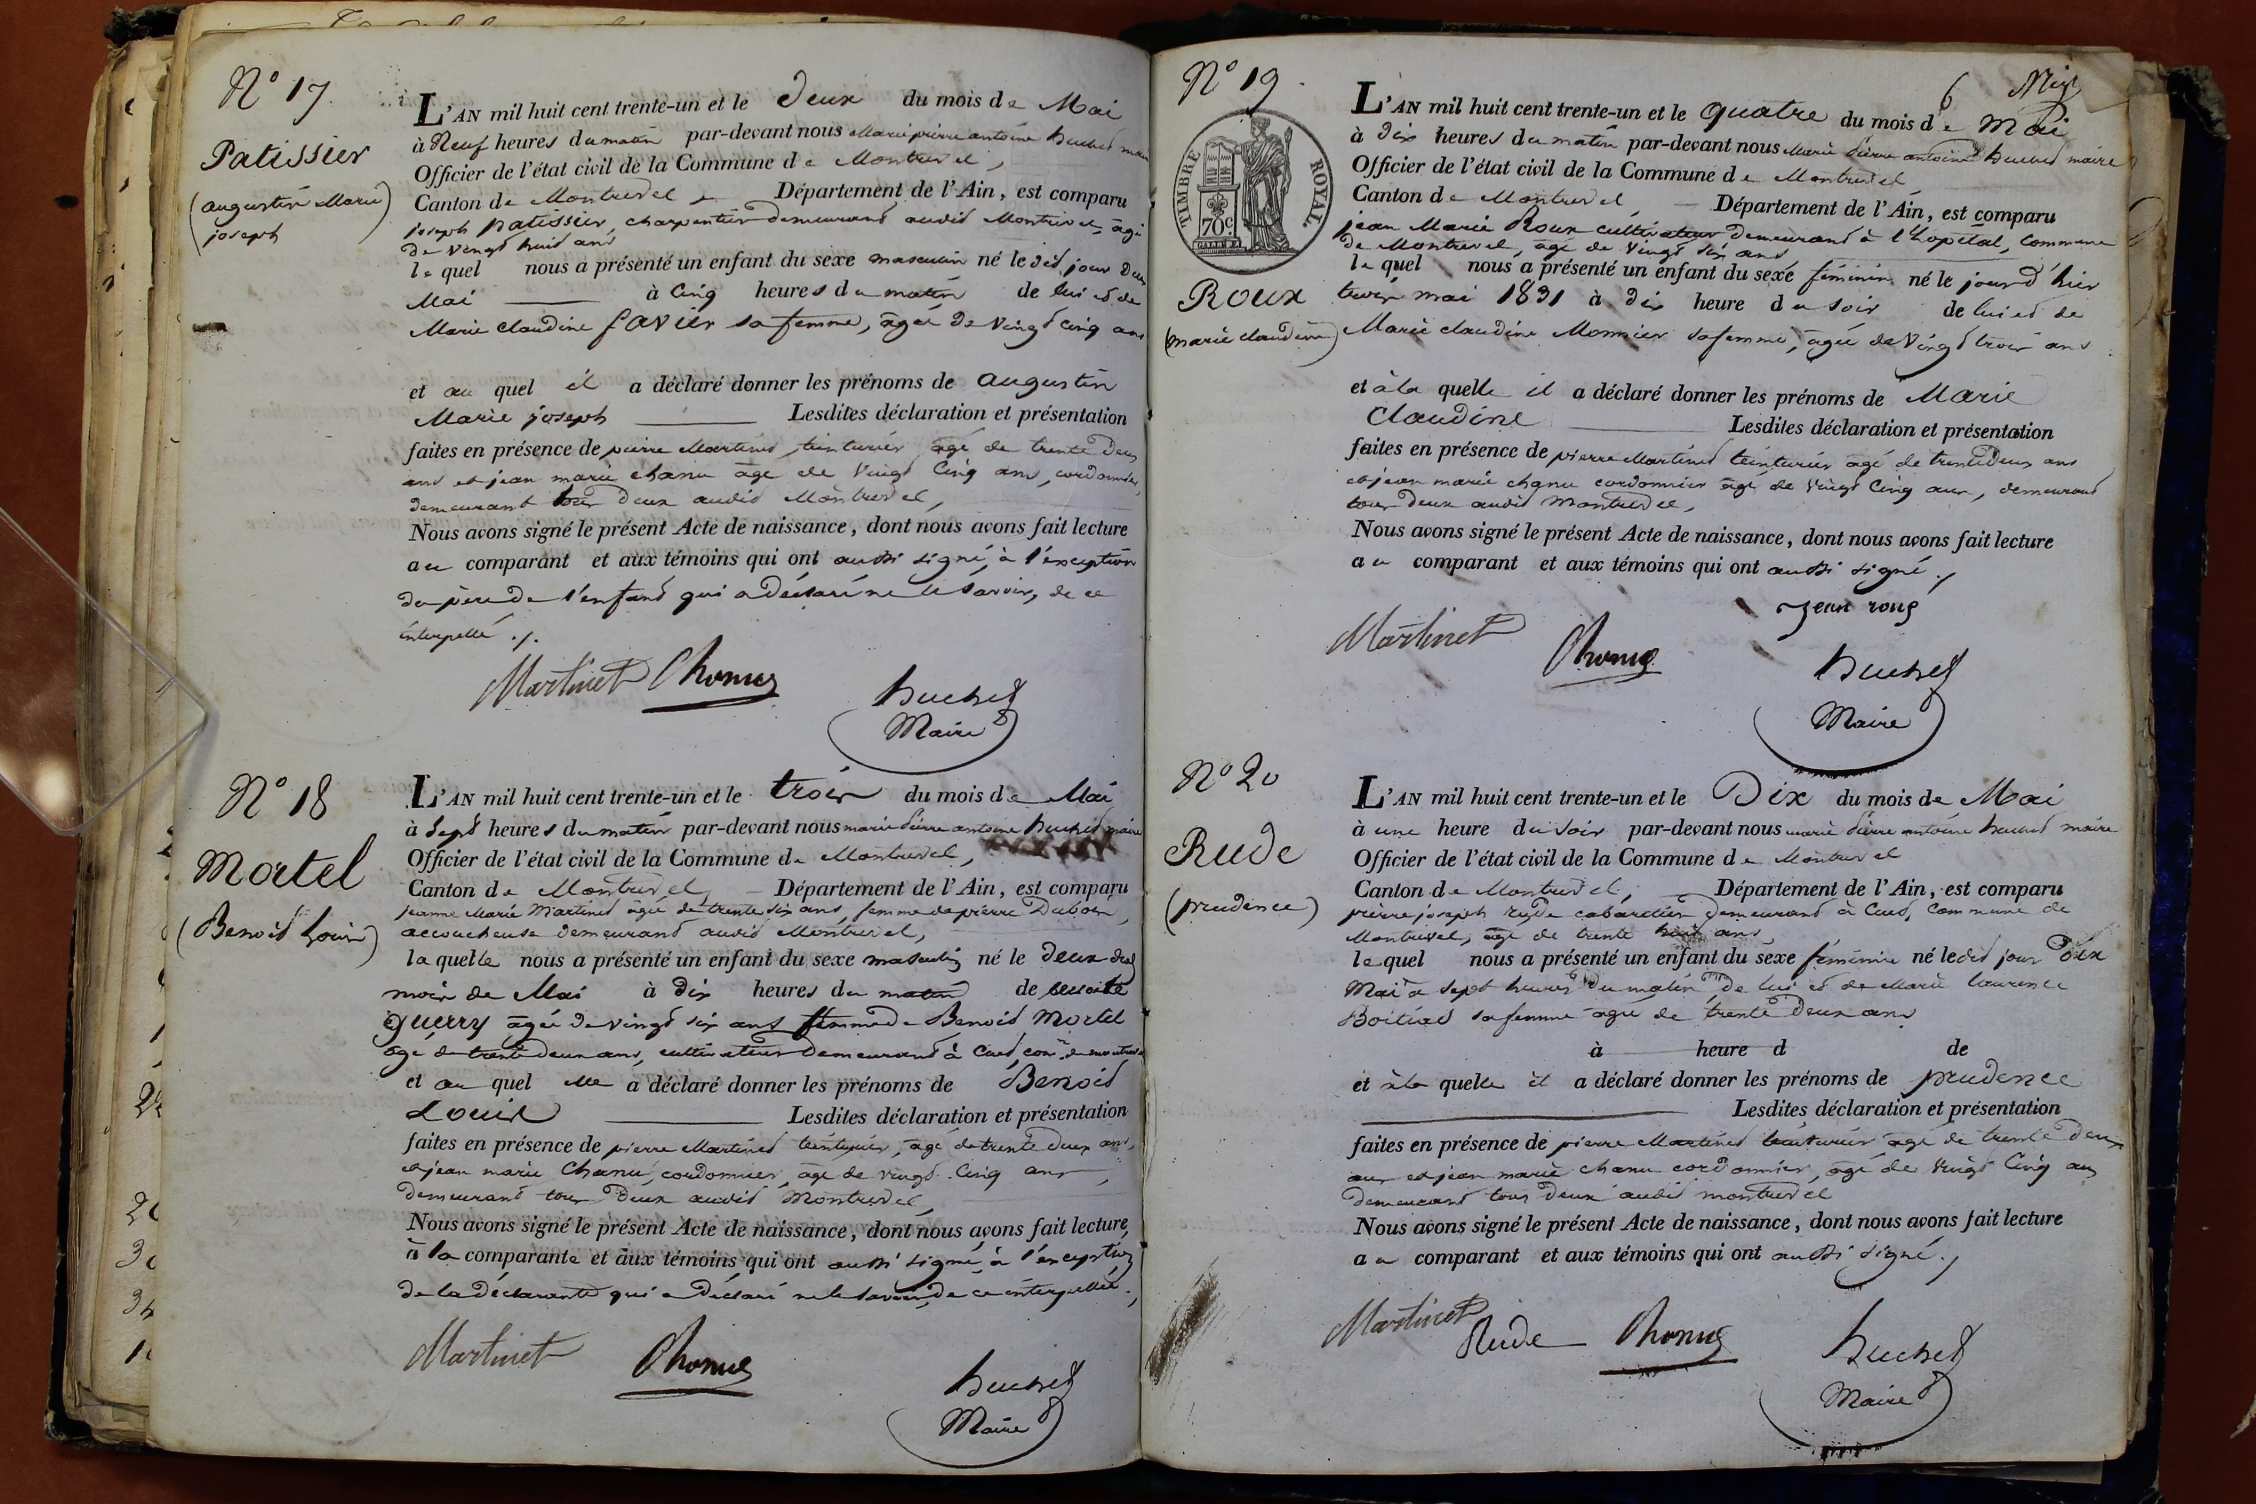 N° 17
Patissier
(augustin Marie
joseph)
L'AN mil huit cent trente-un et le deux du mois de Mai
à Neuf heures du matin par-devant nous Marie pierre antoine huchet maire
Officier de l'état civil de la Commune de Montrevel,
Canton de Montrevel Département de l'Ain, est comparu
joseph patissier, charpentier demeurand audid Montrevel, âgé
de vingd huid ans
le quel nous a présenté un enfant du sexe masculin né le did jour deux
Mai à Cinq heures du matin de lui ed de
Marie claudine favier sa femme, âgée de vingd cinq ans
et au quel il a déclaré donner les prénoms de augustin
Marie joseph Lesdites déclaration et présentation
faites en présence de pierre Martined, teinturier âgé de trente deux
ans et jean marie chanu âgé de vingd cinq ans, cordonnier,
demeurant tous deux audid Montrevel,
Nous avons signé le présent Acte de naissance, dont nous avons fait lecture
au comparant et aux témoins qui ont aussi signé, à l'exception
du père de l'enfand qui a déclaré ne le savoir, de ce
interpellé ./.
Martinet Chanu
huchet
Maire
N° 18
Mortel
(Benoid Louis)
L'AN mil huit cent trente-un et le trois du mois de Mai
à Sept heures du matin par-devant nous marie pierre antoine huchet maire
Officier de l'état civil de la Commune de Montrevel,
Canton de Montrevel, Département de l'Ain, est comparu
jeanne Marie Martined âgée de trente six ans, femme de pierre Dubois,
accoucheuse demeurand audid Montrevel,
la quelle nous a présenté un enfant du sexe masculin né le deux dud
mois de Mai à dix heures du matin de benoite
guerry âgée de vingd six ans femme de Benoid Mortel
âgé de trente deux ans, cultivateur demeurand à Cued, com.ne de montrevel
et au quel elle a déclaré donner les prénoms de Benoid
Louis Lesdites déclaration et présentation
faites en présence de pierre Martined teinturier, âgé de trente deux ans,
et jean marie Chanu, cordonnier, âgé de vingd Cinq ans,
demeurand tous deux audid Montrevel,
Nous avons signé le présent Acte de naissance, dont nous avons fait lecture,
à la comparante et aux témoins qui ont aussi signé, à l'exception
de la déclarante qui a déclaré ne le savoir, de ce interpellée ./.
Martinet Chanu
huchet
Maire
N° 19
6
TIMBRE ROYAL.
70c
Roux
(marie claudine)
L'AN mil huit cent trente-un et le quatre du mois de Mai
à dix heures du matin par-devant nous Marie pierre antoine huched maire
Officier de l'état civil de la Commune de Montrevel
Canton de Montrevel Département de l'Ain, est comparu
jean Marie Roux cultivateur demeurand à l'hopital, Commune
de Montrevel, âgé de vingd six ans
le quel nous a présenté un enfant du sexe féminin né le jour d'hier
trois mai 1831 à dix heure du soir de lui ed de
Marie claudine Monnier sa femme, âgée de vingd trois ans
et à la quelle il a déclaré donner les prénoms de Marie
Claudine Lesdites déclaration et présentation
faites en présence de pierre Martined teinturier âgé de trente deux ans
et jean marie chanu cordonnier âgé de vingd cinq ans, demeurand
tous deux audid Montrevel,
Nous avons signé le présent Acte de naissance, dont nous avons fait lecture
au comparant et aux témoins qui ont aussi signé ./
jean roux
Martinet Chanu
huchet
Maire
N° 20
Rude
(prudence)
L'AN mil huit cent trente-un et le Dix du mois de Mai
à une heure du soir par-devant nous marie pierre antoine huched maire
Officier de l'état civil de la Commune de Montrevel
Canton de Montrevel, Département de l'Ain, est comparu
pierre joseph rude cabaretier demeurand à Cued, Commune de
Montrevel, âgé de trente huit ans
le quel nous a présenté un enfant du sexe féminin né le did jour Dix
Mai à sept heures du matin, De lui ed de Marie laurence
sa femme âgée de trente deux ans
à heure d de
et à la quelle il a déclaré donner les prénoms de prudence
Lesdites déclaration et présentation
faites en présence de pierre Martined teinturier âgé de trente deux
ans et jean marie chanu cordonnier, âgé de vingd cinq ans
demeurand tous deux audid montrevel
Nous avons signé le présent Acte de naissance, dont nous avons fait lecture
au comparant et aux témoins qui ont aussi signé ./
Martinet
Rude Chanu
huchet
Maire